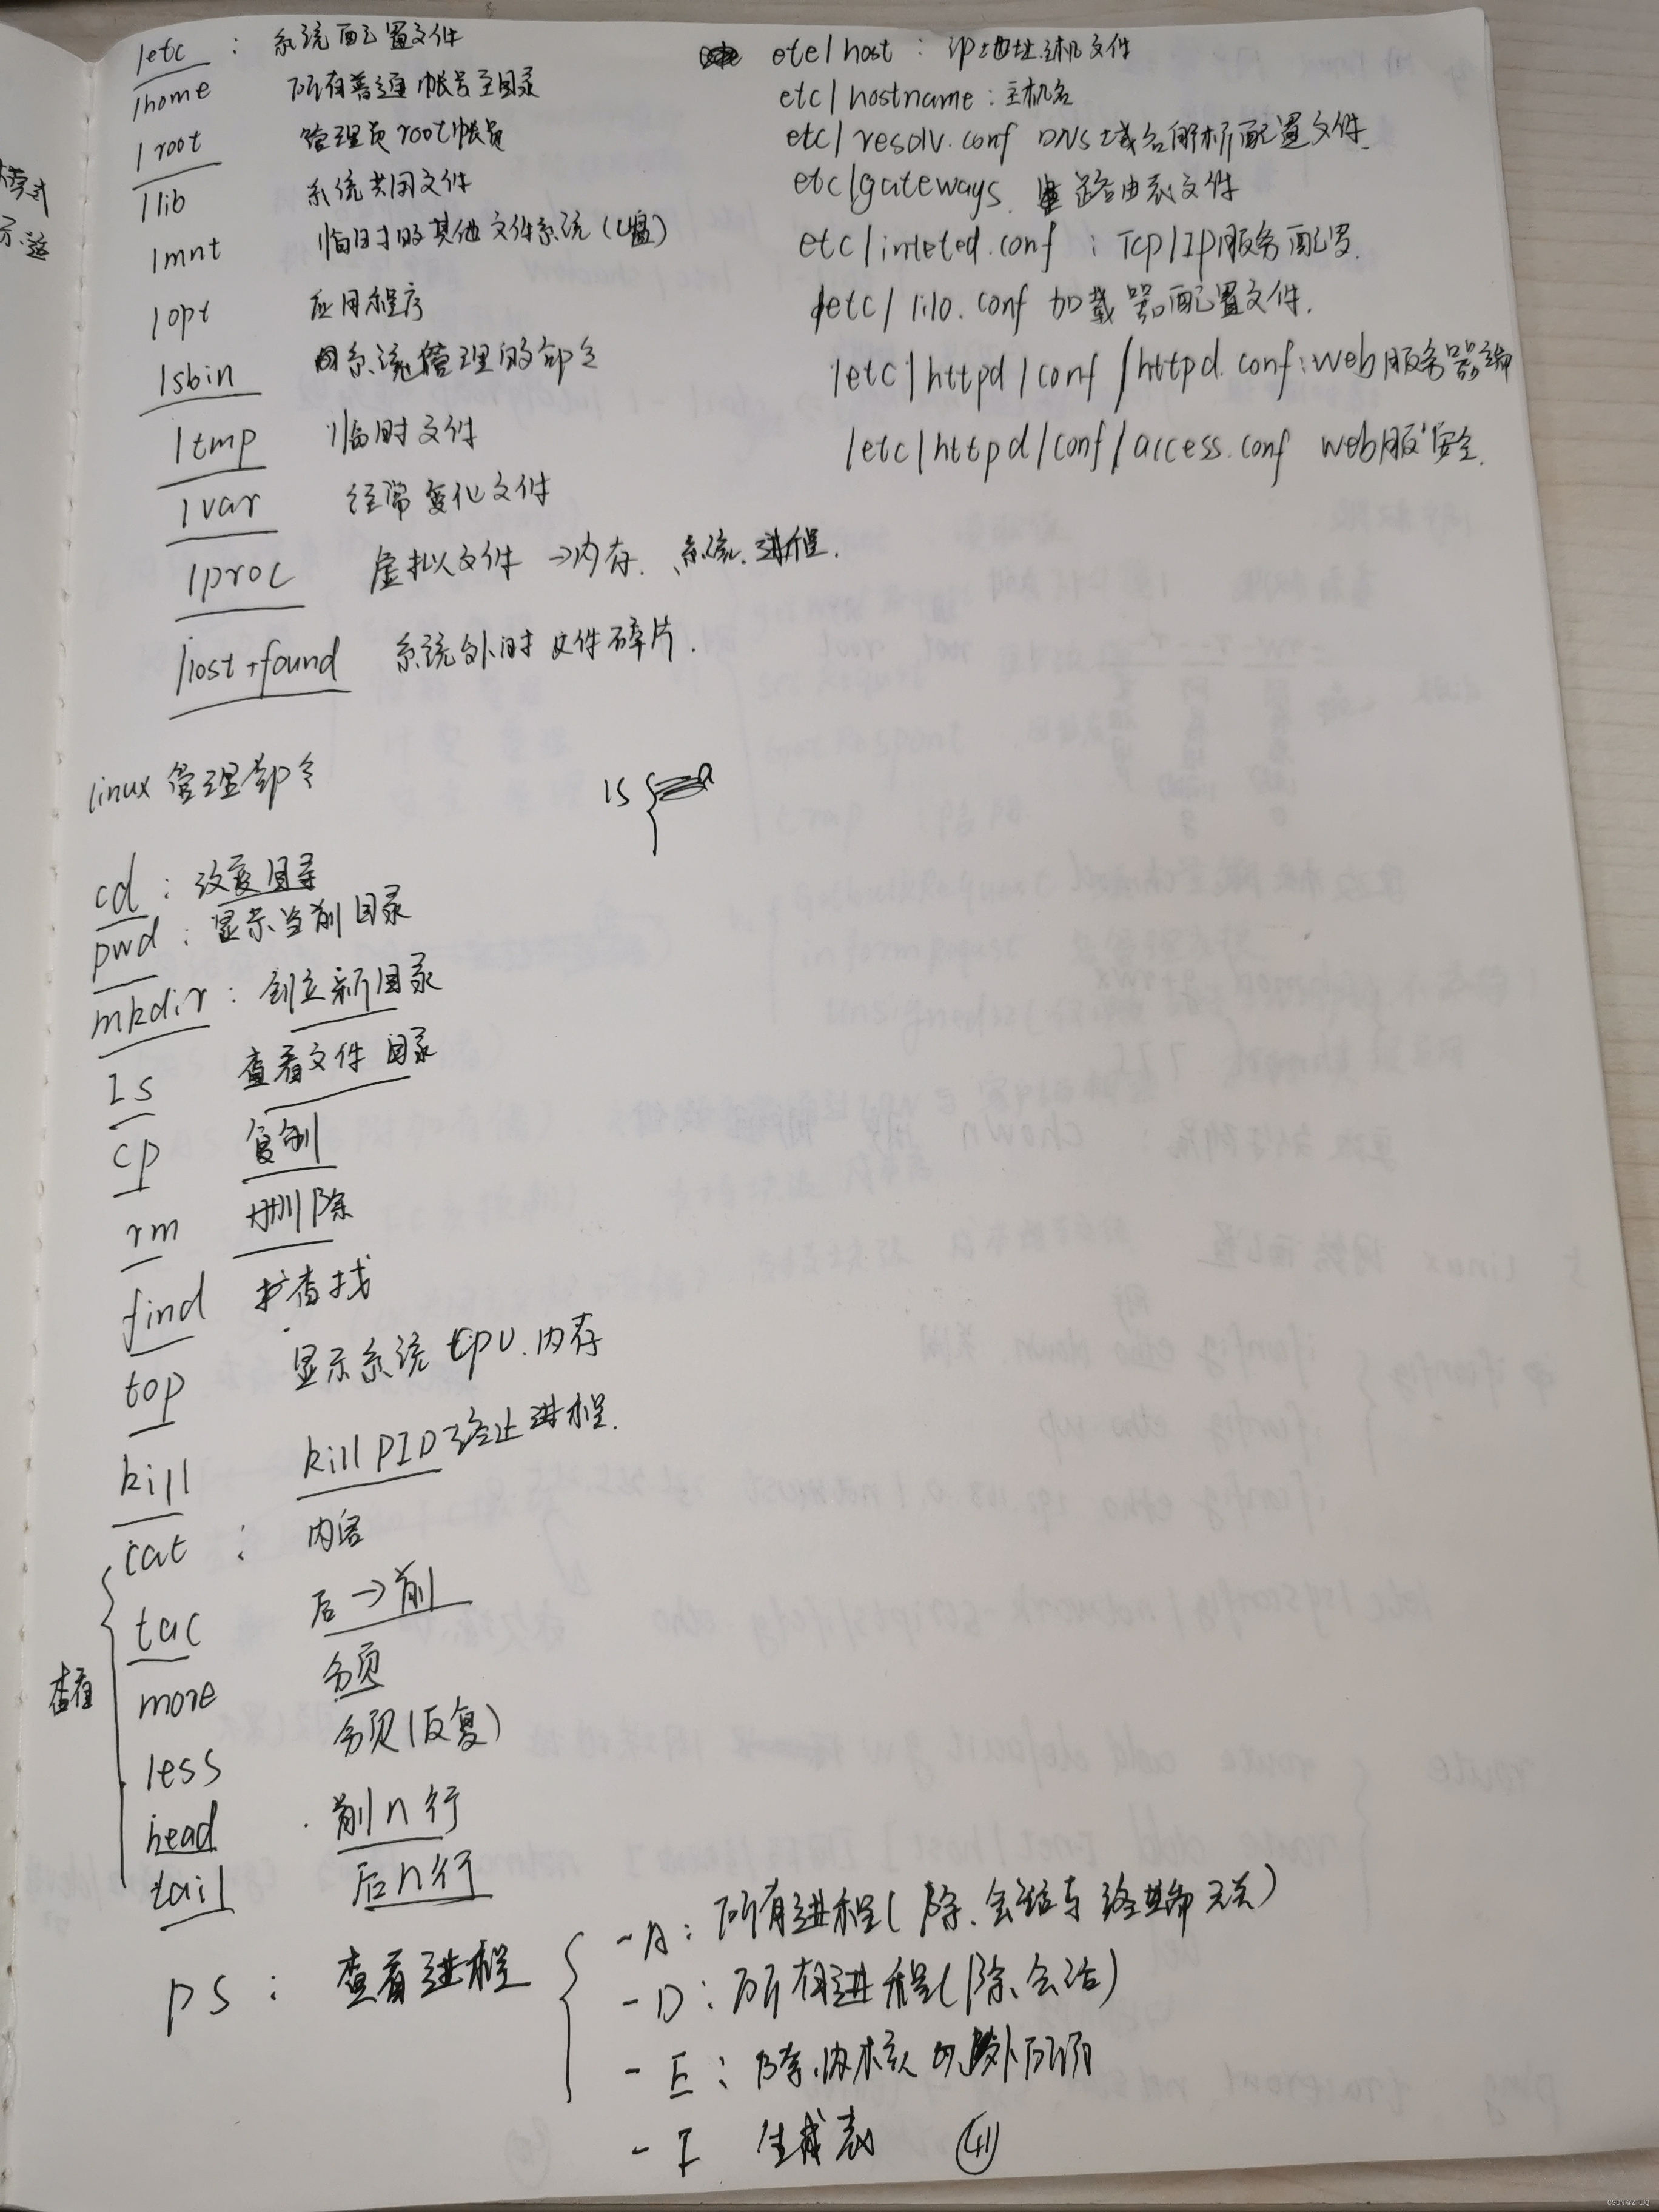 /etc : 系统配置文件
/home 所有普通帐号主目录
/root 管理员root帐员
/lib 系统共同文件
/mnt 临时的其他文件系统(U盘)
/opt 应用程序
/sbin 系统管理的命令
/tmp 临时文件
/var 经常变化文件
/proc 虚拟文件→内存.系统.进程.
/lost+found 系统 文件碎片.
ete/host : ip地址主机文件
etc/hostname : 主机名
etc/resolv.conf DNS域名解析配置文件.
etc/gateways. 路由表文件
etc/inteted.conf : Tcp/Ip服务配置.
/etc/lilo.conf 加载器配置文件.
/etc/httpd/conf/httpd.conf:web服务器端
/etc/httpd/conf/access.conf web服 安全.
linux 管理命令
ls {
cd : 改变目录
pwd : 显示当前目录
mkdir : 创立新目录
ls 查看文件目录
cp 复制
rm 删除
find 查找
top 显示系统cpu.内存
kill kill PID 终止进程.
查看
cat : 内容
tac 后→前
more 分页
less 分页(反复)
head 前n行
tail 后n行
ps : 查看进程
-A : 所有进程(除.会话与终端无关)
-D : 所有进程(除.会话)
-E : 除.内核
-F 生成表
41
CSDN @ZTLJQ